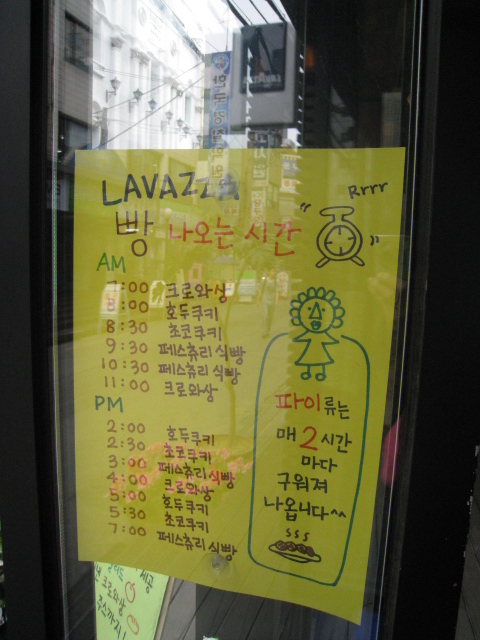 LAVAZZA
Rrrr
빵 나오는 시간
AM
7:00 크로와상
8:00 호두쿠키
8:30 초코쿠키
9:30 페스츄리 식빵
10:30 페스츄리 식빵
11:00 크로와상
PM
2:00 호두쿠키
2:30 초코쿠키
3:00 페스츄리 식빵
4:00 크로와상
5:00 호두쿠키
5:30 초코쿠키
7:00 페스츄리 식빵
파이류는
매 2시간
마다
구워져
나옵니다^^
sss
제공
크로와상
주스까지!